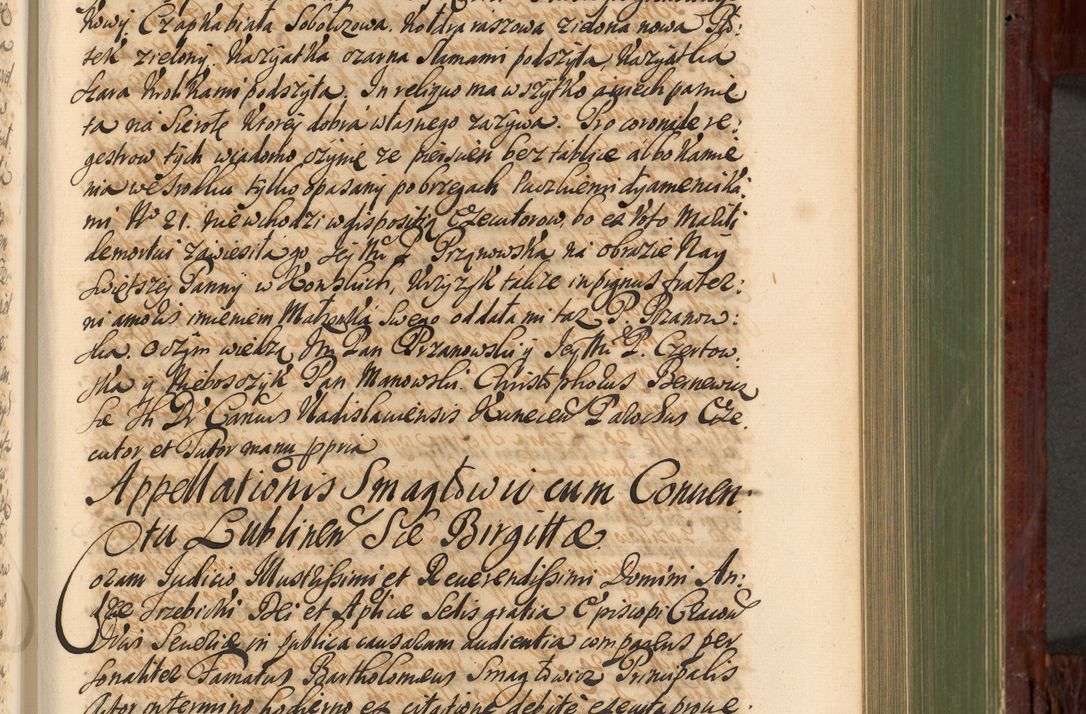 kowy. Czapka biała Sobolowa. Kołdra raszowa zielona nowa Po:
tek zielony. Kazyatka czarna Slamami podszyta, Kazyatka
stara Krolikami podszyta. In reliquo ma wszytko a niech pamię
ta na Sierotę Ktorej dobra własnego zazywa. Pro coronide re:
gestrow tych wiadomo czynię ze piersien bez tablice albo kamie
nia we srodku tylko opasany po brzegach dyamencika
mi Nº 21. nie wchodzi w dispositią Exekutorow, bo ex Voto Mariti
demortui zawiesiła go Jeymć P. Przanowska na obrazie Nay
swiętszej Panny w Konskich, Krzyzyk takze in pignus frater:
ni amoris imieniem Małzonka swego oddała mi taz P. Przanow:
ska. O czym wiedzą Jm Pan Przanowski y Jeymć P. Czertow
ska y Nieboszczyk Pan Manowski. Christophorus Bernewicz
Canus Vladislaviensis Kunecen Parochus Exe.
cutor et Tutor manu ppria
Appellationis Smagłowic cum Conven:
tu Lublinen Sae Birgittae.
Coram Judicio Illustrissimi et Reverendissimi Domini An:
dreae Trzebicki Dei et Aplicae Sedis gratia Episcopi Cracov
Ducis Severiae in publica causarum audientia comparens per
sonaliter Famatus Bartholomeus Smagłowicz Principalis
Actor in termino hodierno ex citatione debite executa prove: